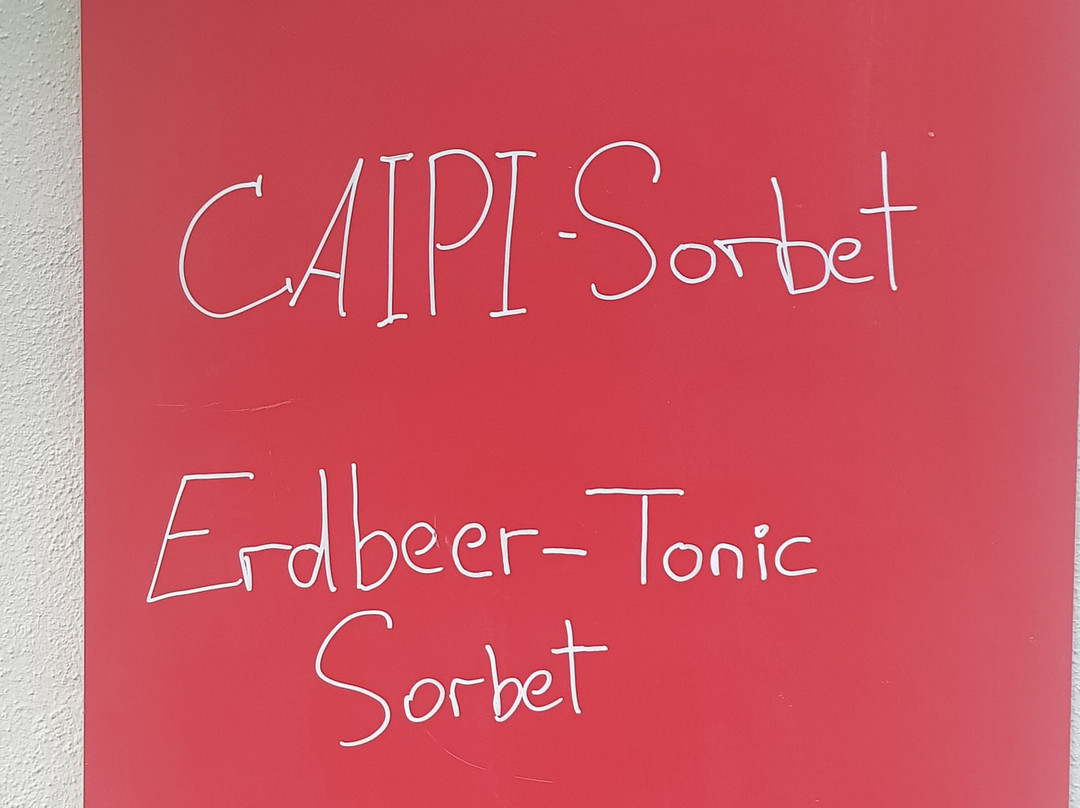 CAIPI-Sorbet
Erdbeer-Tonic
Sorbet